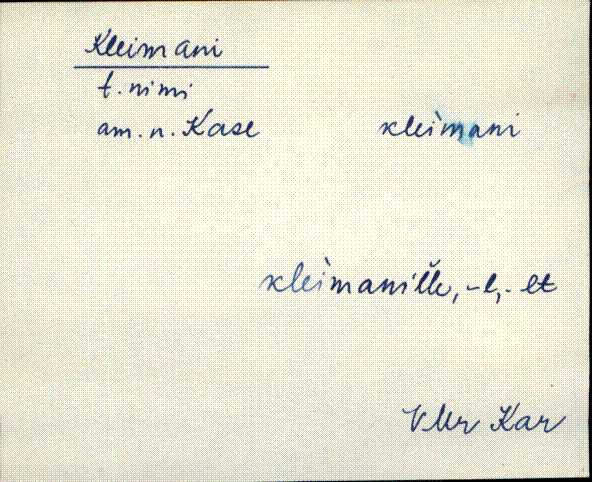 Kleimani
t. nimi
am. n. Kase kleìmani
kleìmanille, -l, -lt
VMr Kar